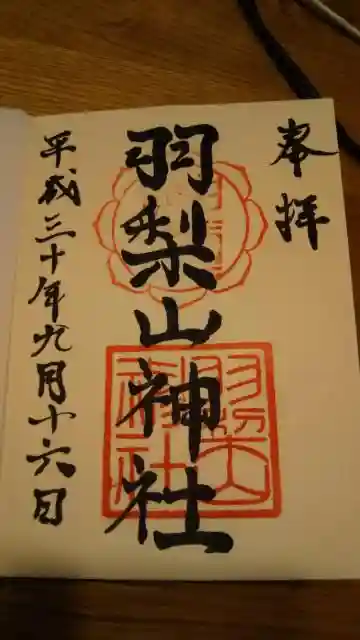 奉拝
羽梨山神社
羽梨山神社
平成三十年九月十六日